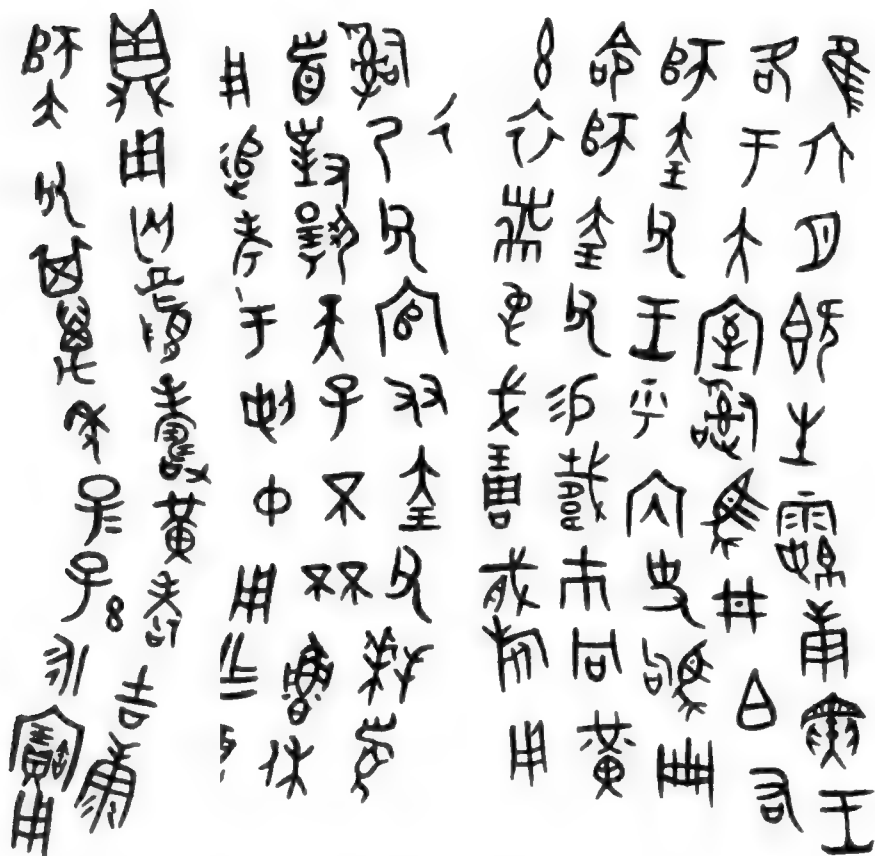 隹六月既生霸庚寅王
各于大室𤔲馬井白右
師𡘇父王乎内史駒冊
命師𡘇父易𩏑巿冋黃
玄衣黹屯戈琱𢧢旂用
𤔲乃父官友𡘇父拜𩒨
首對揚天子不杯魯休
用追考于剌中用乍尊
鼎用匄眉壽黃耇吉康
師𡘇父其萬年子子孫永寶用